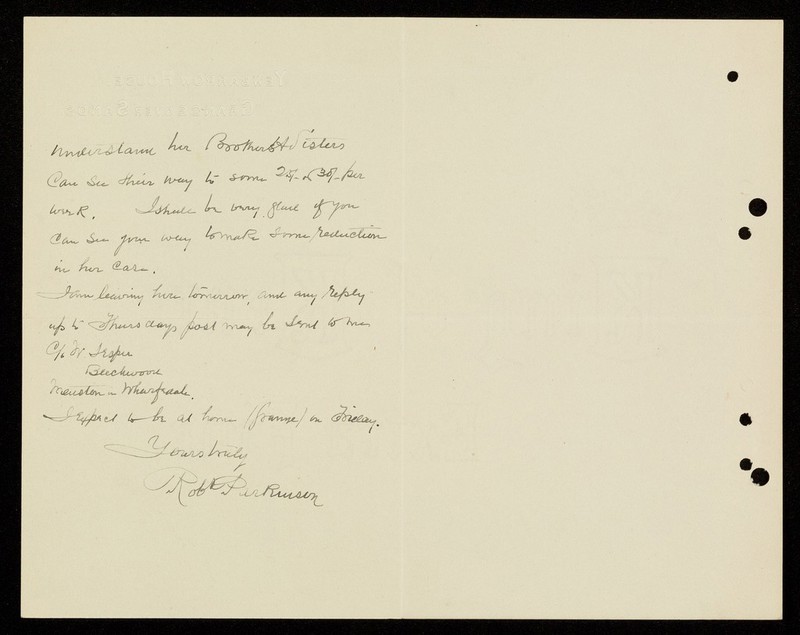 understand her Brothers & Sisters
can see their way to some 25/- or 30/- per
week. I should be very glad if you
can see your way to make some reduction
in her case.
I am leaving here tomorrow, and any reply
up to Thursdays post may be sent to me
C/o W
Beechwood
Menston in Wharfedale.
I expect to be at home on Friday.
Yours truly
Robt Perkinson